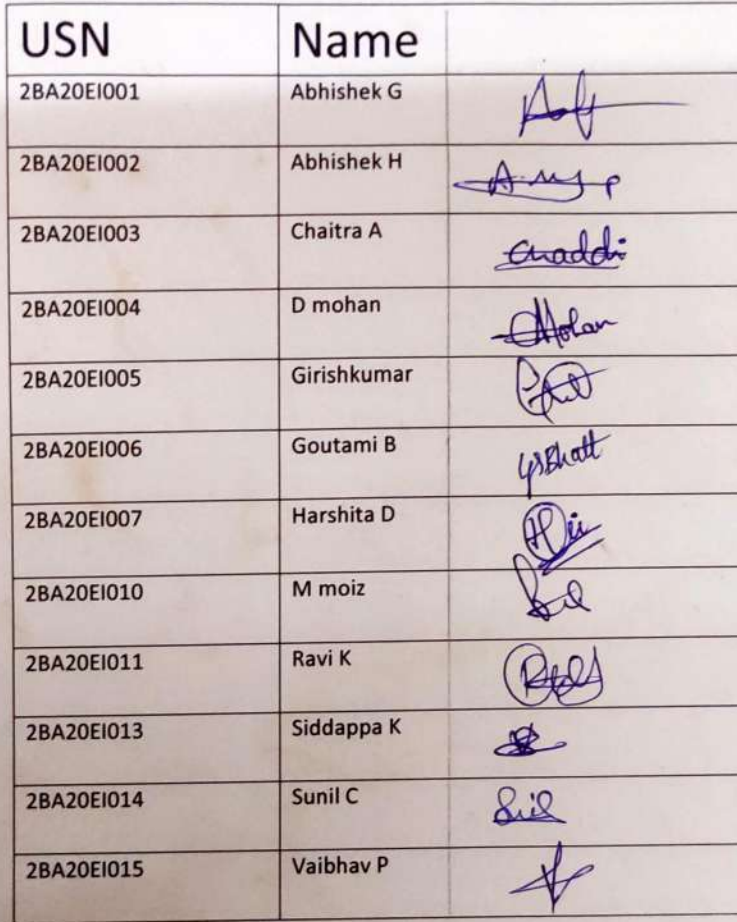 USN Name
2BA20EI001 Abhishek G
2BA20EI002 Abhishek H
2BA20EI003 Chaitra A
2BA20EI004 D mohan Mohan
2BA20EI005 Girishkumar
2BA20EI006 Goutami B
2BA20EI007 Harshita D
2BA20EI010 M moiz
2BA20EI011 Ravi K
2BA20EI013 Siddappa K
2BA20EI014 Sunil C
2BA20EI015 Vaibhav P